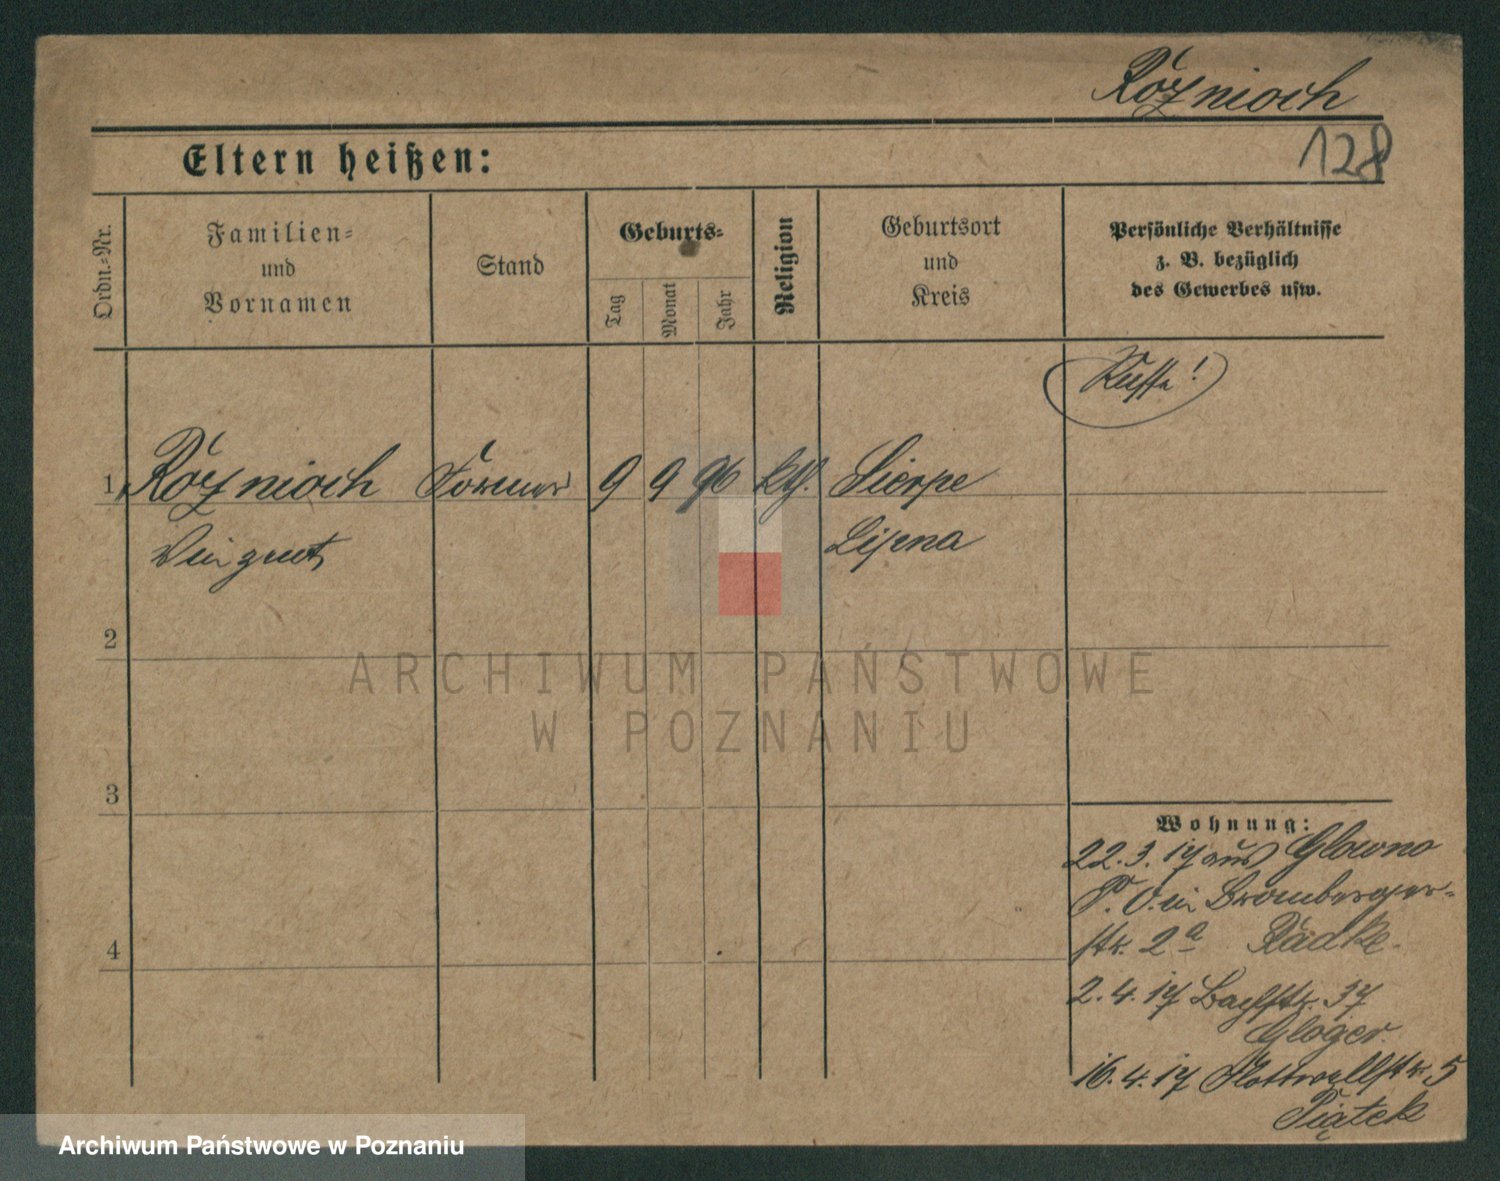 Różnioch
128
Eltern heißen:
Ordn.-Nr.
Familien-
und
Vornamen
Stand
Geburts-
Tag
Monat
Jahr
Religion
Geburtsort
und
Kreis
Persönliche Verhältnisse
z. B. bezüglich
des Gewerbes usw.
Russe!
1 Różnioch Former 9 9 96 kth. Sierpc
Vinzent Lipna
2
3
4
Wohnung:
22.3.17 aus Glowno
P. O. in Bromberger-
str. 2a Radke.
2.4.17 Bachstr. 37
Gloger.
16.4.17 Flottwellstr. 5
Piątek
ARCHIWUM PAŃSTWOWE
W POZNANIU
Archiwum Państwowe w Poznaniu